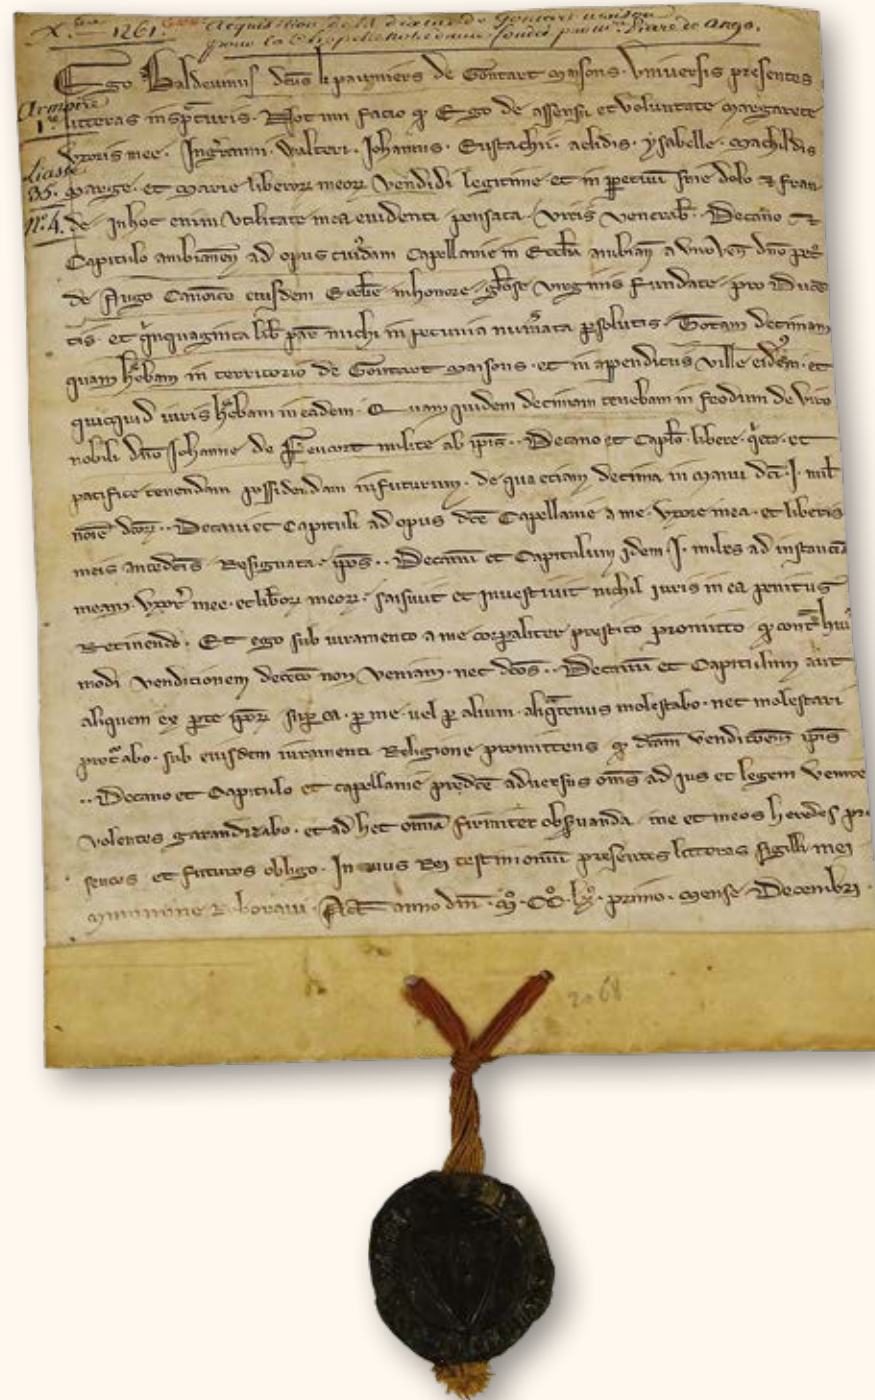 X.bre 1261. Acquisition de la dixme de Gontart maison
pour la Chappelle Notre dame fondée par Mre Pierre de Augo.
Ego Balduinus dcūs li paumiers de Gontart maisons. Vniuersis presentes
Armoire
1re litteras inspcturis. Notum facio qd Ego de assensu et voluntate Margarete
vxoris mee. Ingranni. Walteri. Johannis. Eustachii. aelidis. ysabelle. Machildis
Liasse
36. et Marie liberorꝝ meorꝝ vendidi legitime et in ppetuū sine dolo ⁊ frau
n.o 4. de in hoc enim vtilitate mea euidenti pensata. viris venerab. Decano ⁊
Capitulo ambianeñ ad opus cuidam Capellanie in Ecclia ambiañ a viro veñ dño pet̃
de Augo Canonico eiusdem Ecclie in honore gliose virginis fundate. pro Ducē
tis. et q̃nquaginta lib par michi in pecunia nūata psolutis. Totam decimam
quam hẽbam in territorio de Gontart maisons. et in appendiciis ville eidem. et
quicquid iuris hẽbam in eadem. Quam quidem decimam tenebam in feodum de viro
nobili dño Johanne de milite ab ipis.. Decano et Caplo. libere. q̃ete. et
pacifice tenendam possidendam infuturum. de qua etiam decima in manu dci. J. mil
noīe dcorꝝ.. Decani et Capituli ad opus dcē Capellanie a me. vxore mea. et liberis
meis antedcis Resignata. ipos.. Decanū et Capitulum idem. J. miles ad instanciā
meam. vxor̃ mee. et libor̃ meorꝝ. saisiuit et inuestiuit nichil iuris in ea penitus
Retinendo. Et ego sub iuramento a me corpaliter prestito promitto qd contra hui
modi vendicionem decet̃o non veniam. nec dcos.. Decanū et Capitulum aut
aliquem ex pte ipor̃ sup ea. p me. uel p alium. aliq̃tenus molestabo. nec molestari
procurabo. sub eiusdem iuramenti Religione promittens qd dcam vendicōem ipis
.. Decano et Capitulo et capellanie predcē aduersus oms ad ius et legem venire
volentes garandizabo. et ad hec omia firmiter obseruanda. me et meos heredes pre
sentes et futuros obligo. In cuius Rei testimonium presentes litteras sigilli mei
munimine Roboraui. Act̃ anno dñi. Mo. CCo. lxo. primo. mense Decembri.
2068